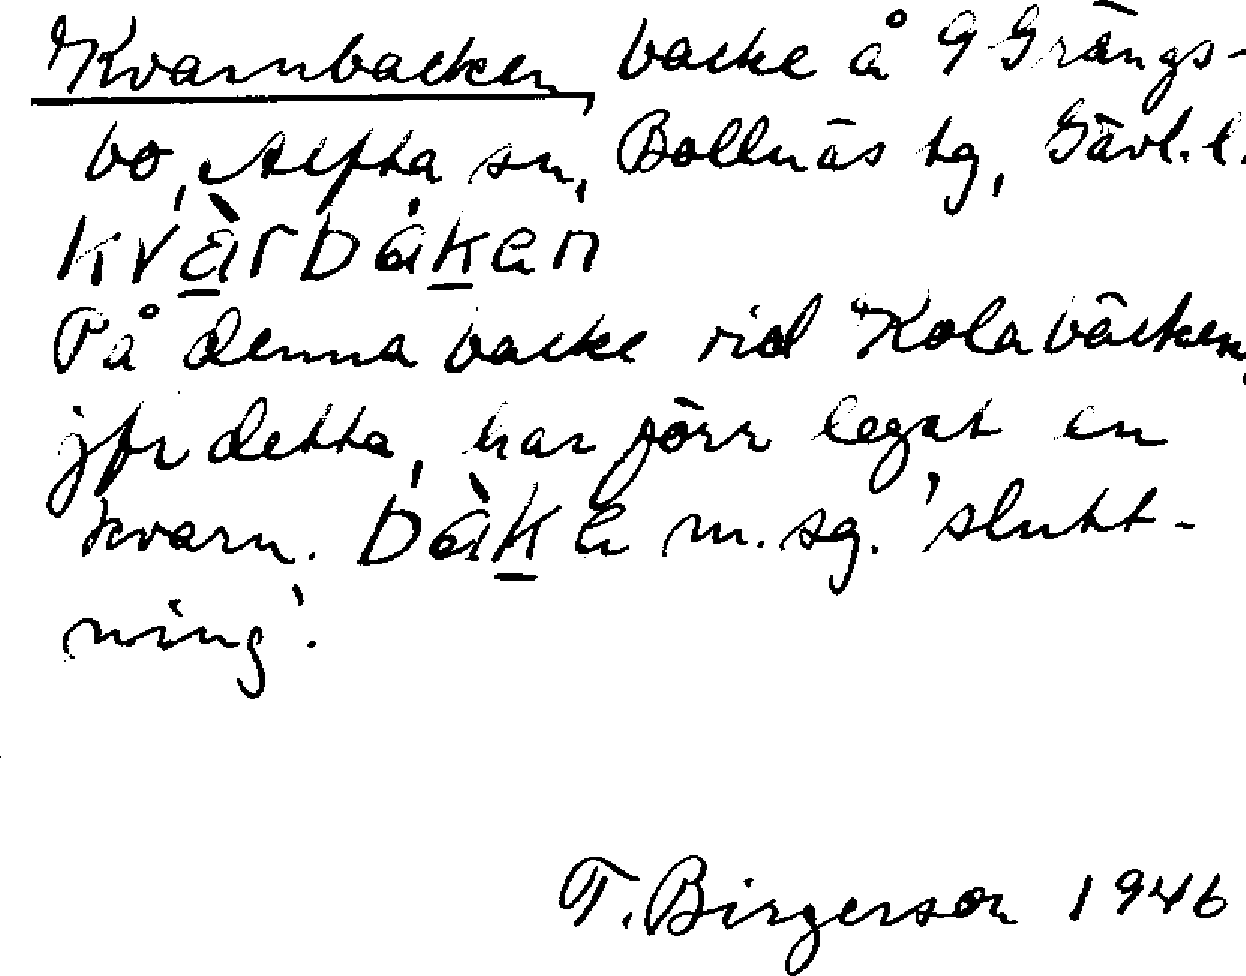 Kvarnbacken, backe å 9 Grängs-
bo, Alfta sn, Bollnäs tg, Gävl. l.
kvàrbákan
På denna backe vid Kolabäcken,
jfr detta, har förr legat en
kvarn. bàka m. sg. 'slutt-
ning'.
T. Birgerson 1946